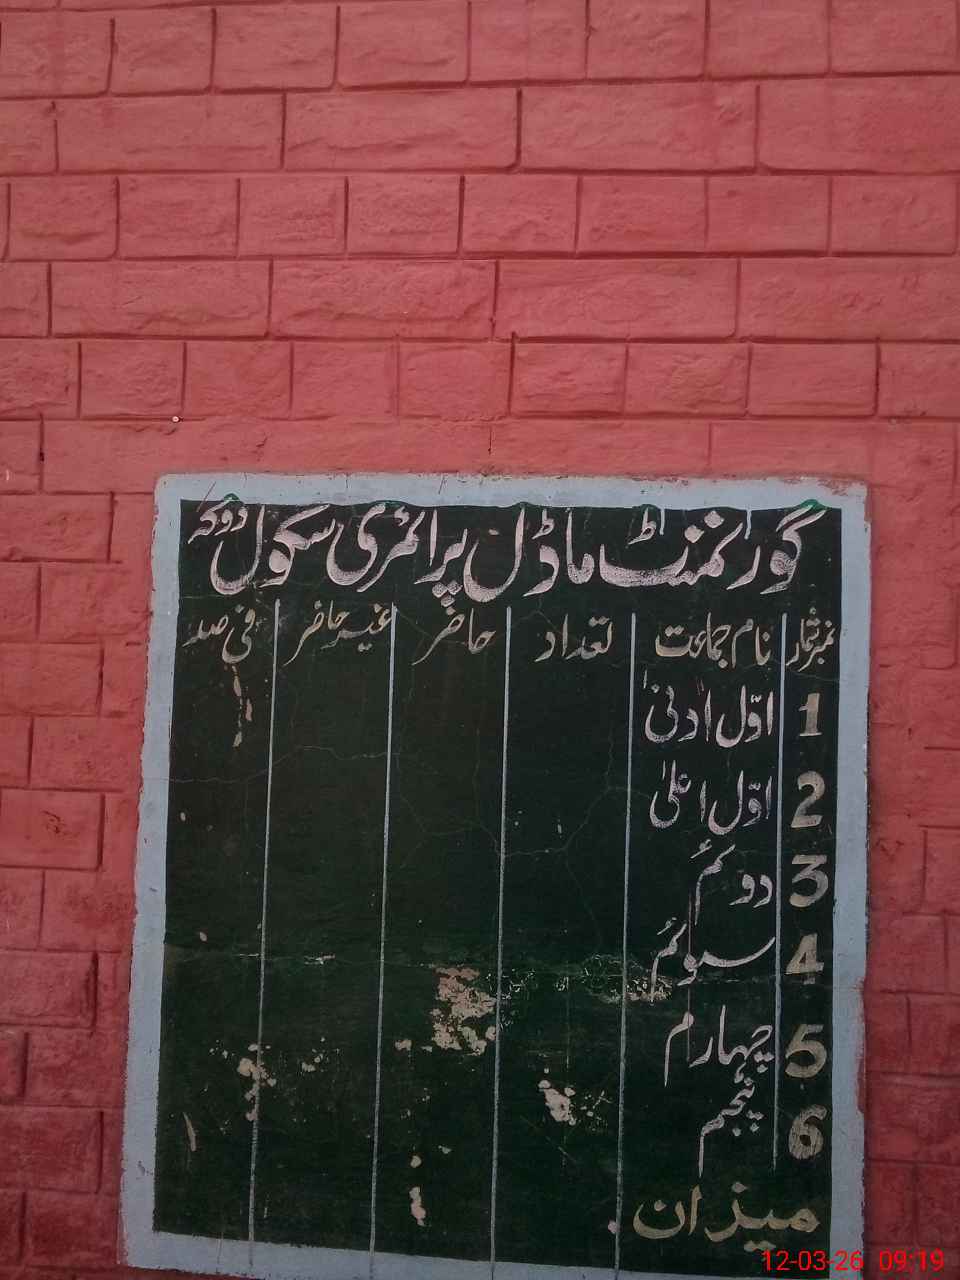 گورنمنٹ ماڈل پرائمری سکول دوکہ
نمبر شمار نام جماعت تعداد حاضر غیر حاضر فی صد
1 اوّل ادنیٰ
2 اوّل اعلیٰ
3 دوئم
4 سوئم
5 چہارم
6 پنجم
میزان
12-03-26 09:19